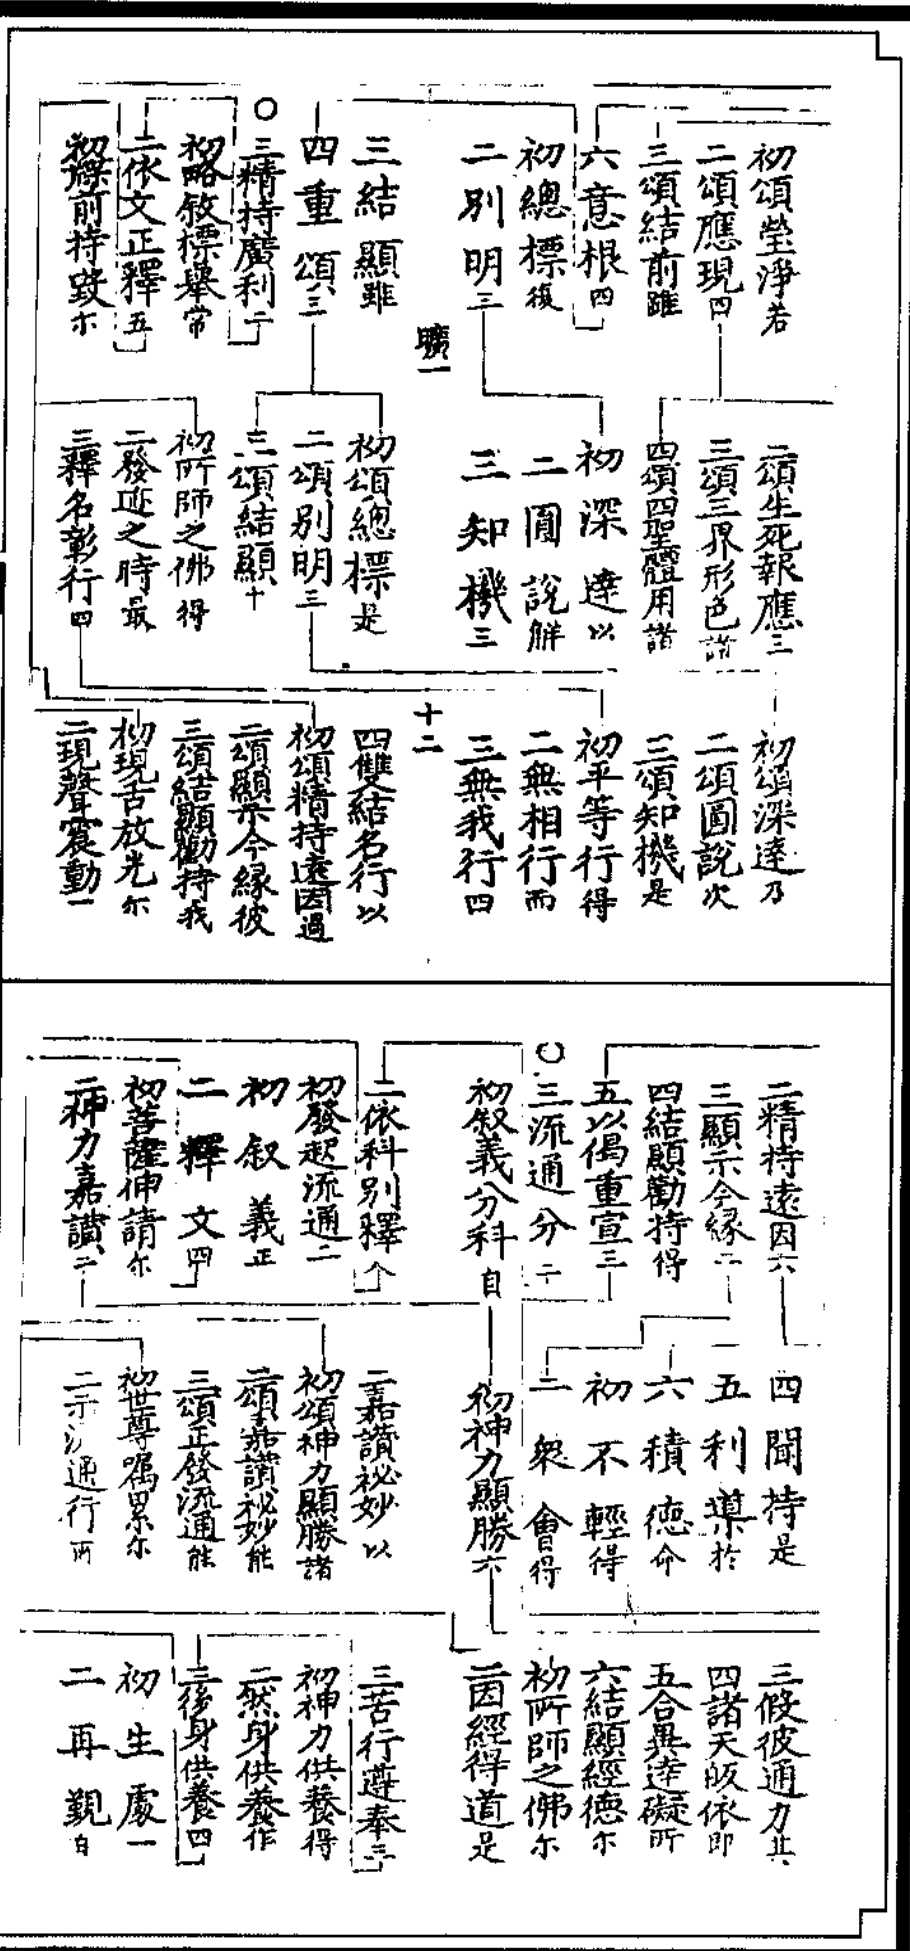 初頌瑩淨若
二頌應現四
三頌結前雖
六意根四
初總標復
二別明三
曠一
三結顯雖
四重頌三
○三精持廣利二
初略敘標舉常
二依文正釋五
初牒前持毀尓
二頌生死報應三
三頌三界形色諸
四頌四聖體用諸
初深達以
二圓說解
三知機三
初頌總標是
二頌別明三
三頌結顯十
初所師之佛得
二發迹之時最
三釋名彰行四
初頌深達乃
二頌圓說次
三頌知機是
初平等行得
二無相行而
三無我行四
十二
四雙結名行以
初頌精持遠因過
二頌顯示今緣彼
三頌結顯勸持我
初現舌放光尓
二現聲震動一
二精持遠因六
三顯示今緣二
四結顯勸持得
五以偈重宣三
○三流通分二
初敘義分科自
二依科別釋个
初發起流通二
初敘義正
二釋文四
初菩薩伸請尓
二神力嘉讚二
四聞持是
五利導於
六積德命
初不輕得
二眾會得
初神力顯勝六
二嘉讚祕妙以
初頌神力顯勝諸
二頌嘉讚祕妙能
三頌正發流通能
初世尊囑累尓
二示流通行而
三假彼通力其
四諸天皈依即
五合異達礙所
六結顯經德尓
初所師之佛尓
二因經得道是
三苦行遵奉三
初神力供養得
二然身供養作
三後身供養四
初生處一
二再覲白